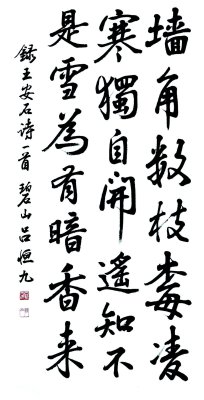 墙角数枝梅凌
寒獨自開遥知不
是雪為有暗香来
録王安石诗一首 碧山吕恒九